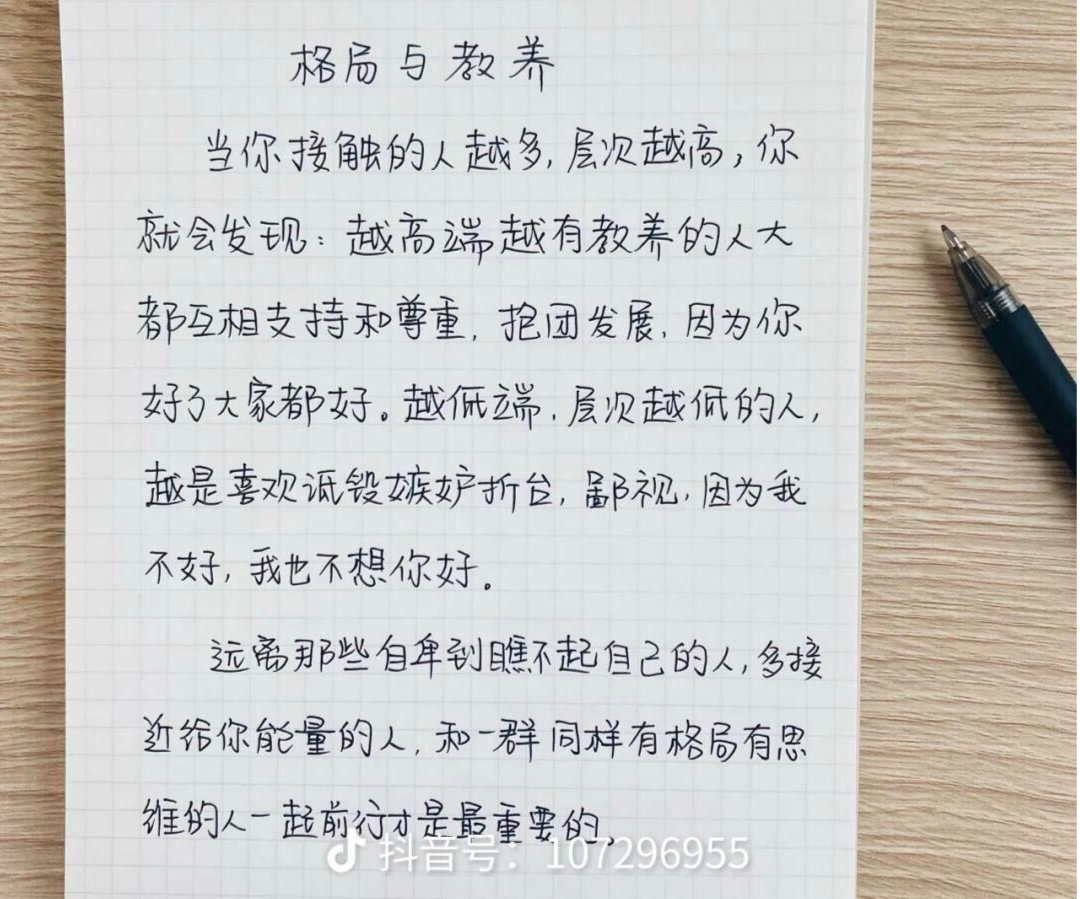 格局与教养
当你接触的人越多,层次越高,你
就会发现:越高端越有教养的人大
都互相支持和尊重,抱团发展,因为你
好了大家都好。越低端,层次越低的人,
越是喜欢诋毁嫉妒折台,鄙视,因为我
不好,我也不想你好。
远离那些自卑到瞧不起自己的人,多接
近给你能量的人,和一群同样有格局有思
维的人一起前行才是最重要的。
抖音号:107296955